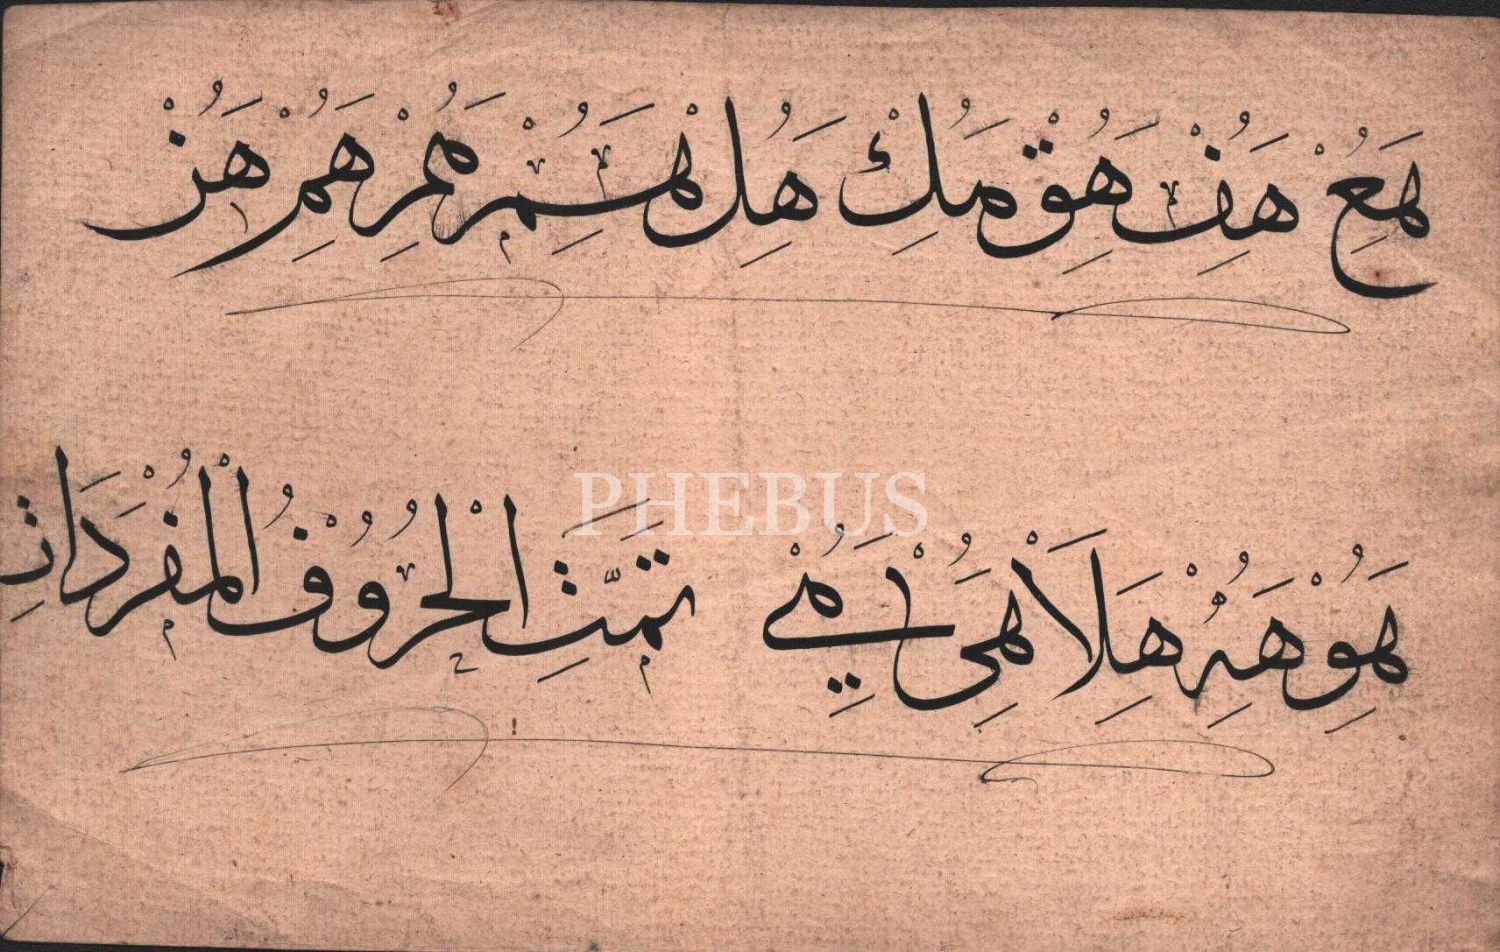 هَعْ هَفْ هَقْ هَكْ هَلْ هَسَمْ هَمْ هَمْ هَنْ
PHEBUS
هَوْ هَهْ هَلَا هَىْ هَيْ تَمَّتِ الْحُرُوفُ الْمُفْرَدَاتِ